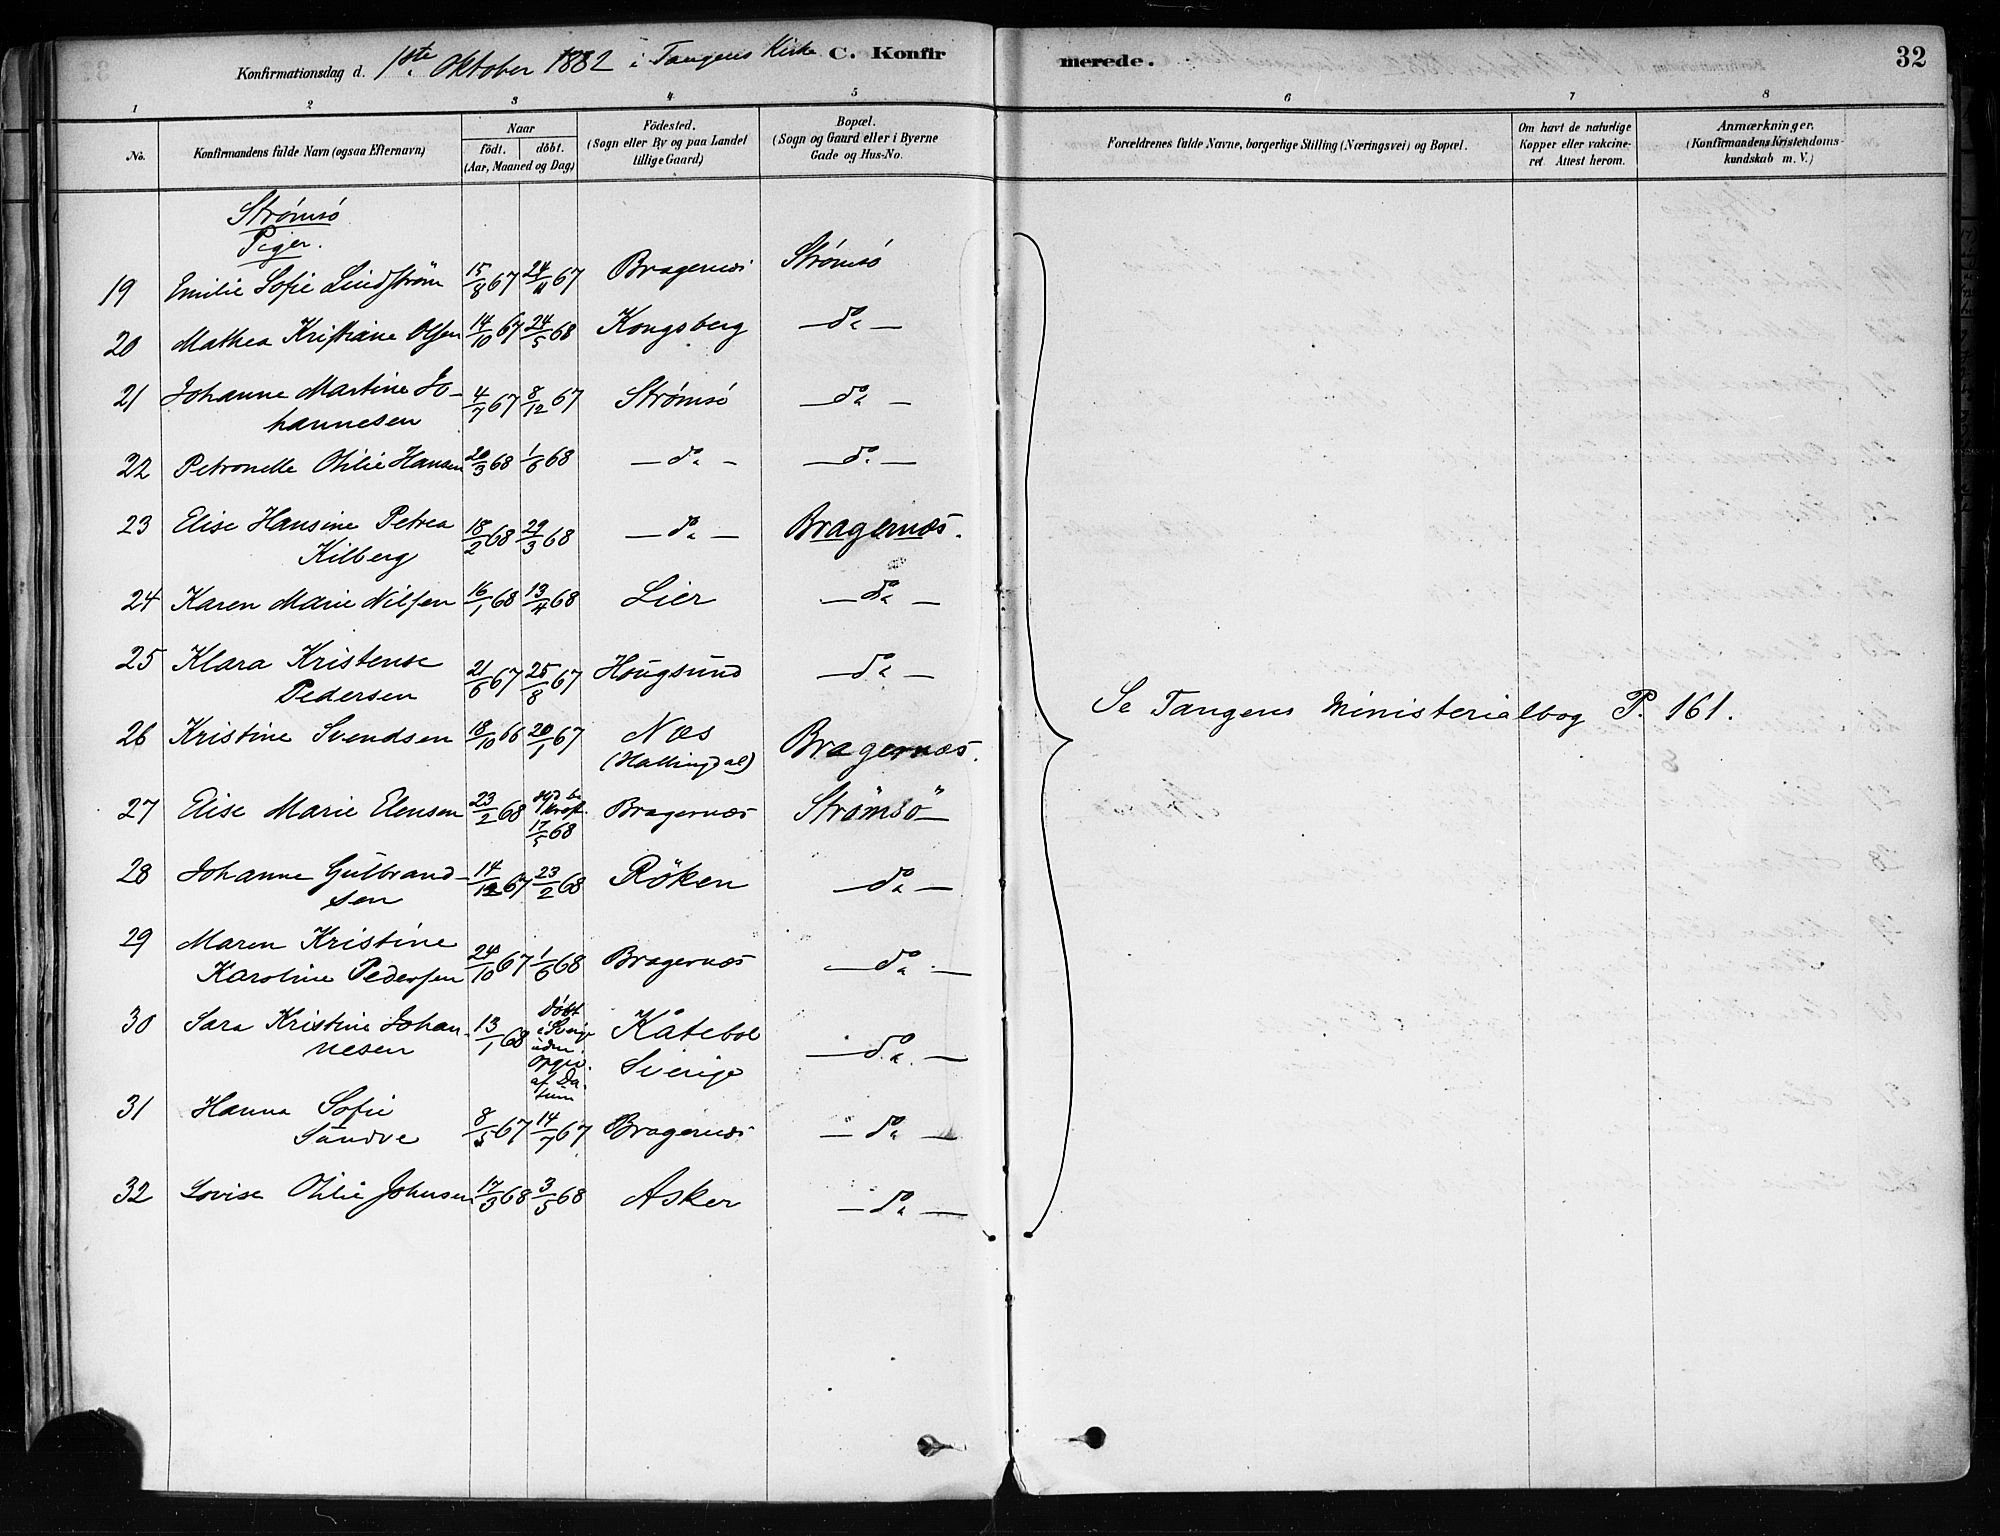 Konfirmationsdag d. 1ste Oktober 1882 i Tangens Kirke C. Konfirmerede. 32
1 2 3 4 5 6 7 8
No. Konfirmandens fulde Navn (ogsaa Efternavn) Naar födt. döbt. (Aar, Maaned og Dag) Födested. (Sogn eller By og paa Landet tillige Gaard) Bopæl. (Sogn og Gaard eller i Byerne Gade og Hus-No. Forældrenes fulde Navne, borgerlige Stilling (Næringsvei) og Bopæl. Om havt de naturlige Kopper eller vakcineret Attest herom. Anmærkninger. (Konfirmandens Kristendomskundskab m. V.)
Strømsö
Piger.
19 Emilie Sofie Lindström 15/8 67 24/11 67 Bragernæs Strömsö
20 Mathea Kristiane Olsen 14/10 67 24/5 68 Kongsberg — do —
21 Johanne Martine Jo-
hannesen 4/7 67 8/12 67 Strömsö — do —
22 Petronelle Othilie Hansen 20/3 68 1/6 68 — do — — do —
23 Elise Hansine Petrea
Kilberg 18/2 68 29/3 68 — do — Bragernæs.
24 Karen Marie Nilsen 16/1 68 13/4 68 Lier — do —
25 Klara Kristense
Pedersen 21/6 67 25/8 67 Hougsund — do —
26 Kristine Svendsen 18/10 66 20/1 67 Næs
(Hallingdal) Bragernæs.
27 Elise Marie Elensen 23/2 68 17/5 68 Bragernæs Strömsö
28 Johanne Gulbrand-
sen 14/12 67 23/2 68 Röken — do —
29 Maren Kristine
Karoline Pedersen 24/10 67 1/6 68 Bragernæs — do —
30 Sara Kristine Johan-
nesen 13/1 68 Döbt
i Sverige
uden
Opgiv.
af Da
tum Kåtebol
Sverige — do —
31 Hanna Sofie
Sandve 8/5 67 14/7 67 Bragernæs — do —
32 Lovise Othilie Johnsen 17/3 68 3/5 68 Asker — do —
Se Tangens Ministerialbog P. 161.